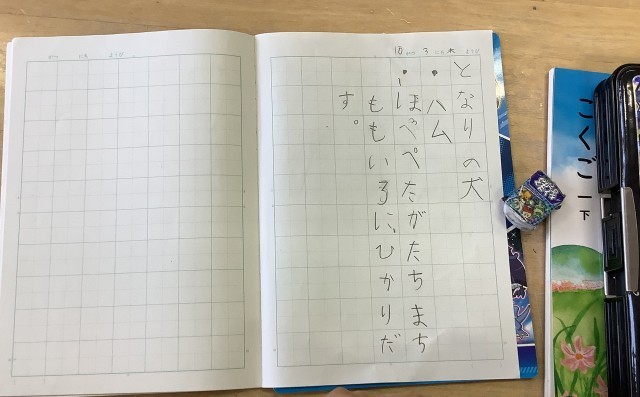 10 がつ 3 にち れ ようび
となりの犬
・ハム
・ほっぺたがたちまち
ももいろに、ひかりだ
す。
がつ にち ようび
こくご 一下